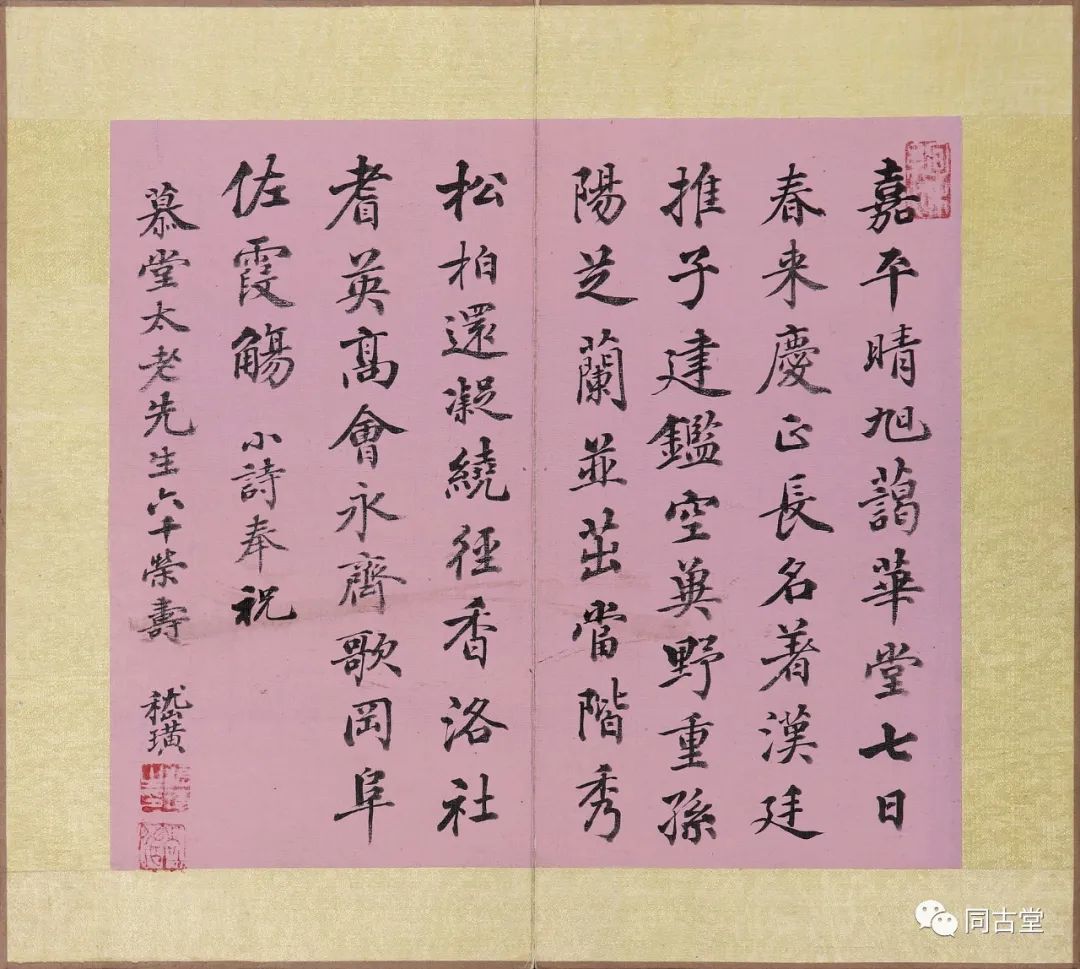 嘉平晴旭藹華堂七日
春来慶正長名著漢廷
推子建鑑空冀野重孫
陽芝蘭並茁當階秀
松柏還凝繞徑香洛社
耆英高會永齊歌岡阜
佐霞觴 小詩奉祝
慕堂太老先生六十榮壽 嵇璜
同古堂